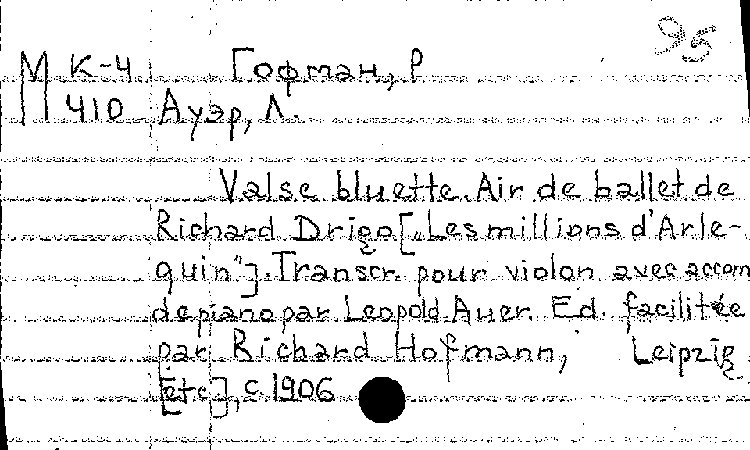 95
М К-4 Гофман, Р
410 Ауэр, Л.
Valse bluette. Air de ballet de
Richard Drigo [„Les millions d'Arle-
quin"]. Transcr. pour violon avec accom
de piano par Leopold Auer. Ed. facilitée
par Richard Hofmann, Leipzig
[etc], c. 1906